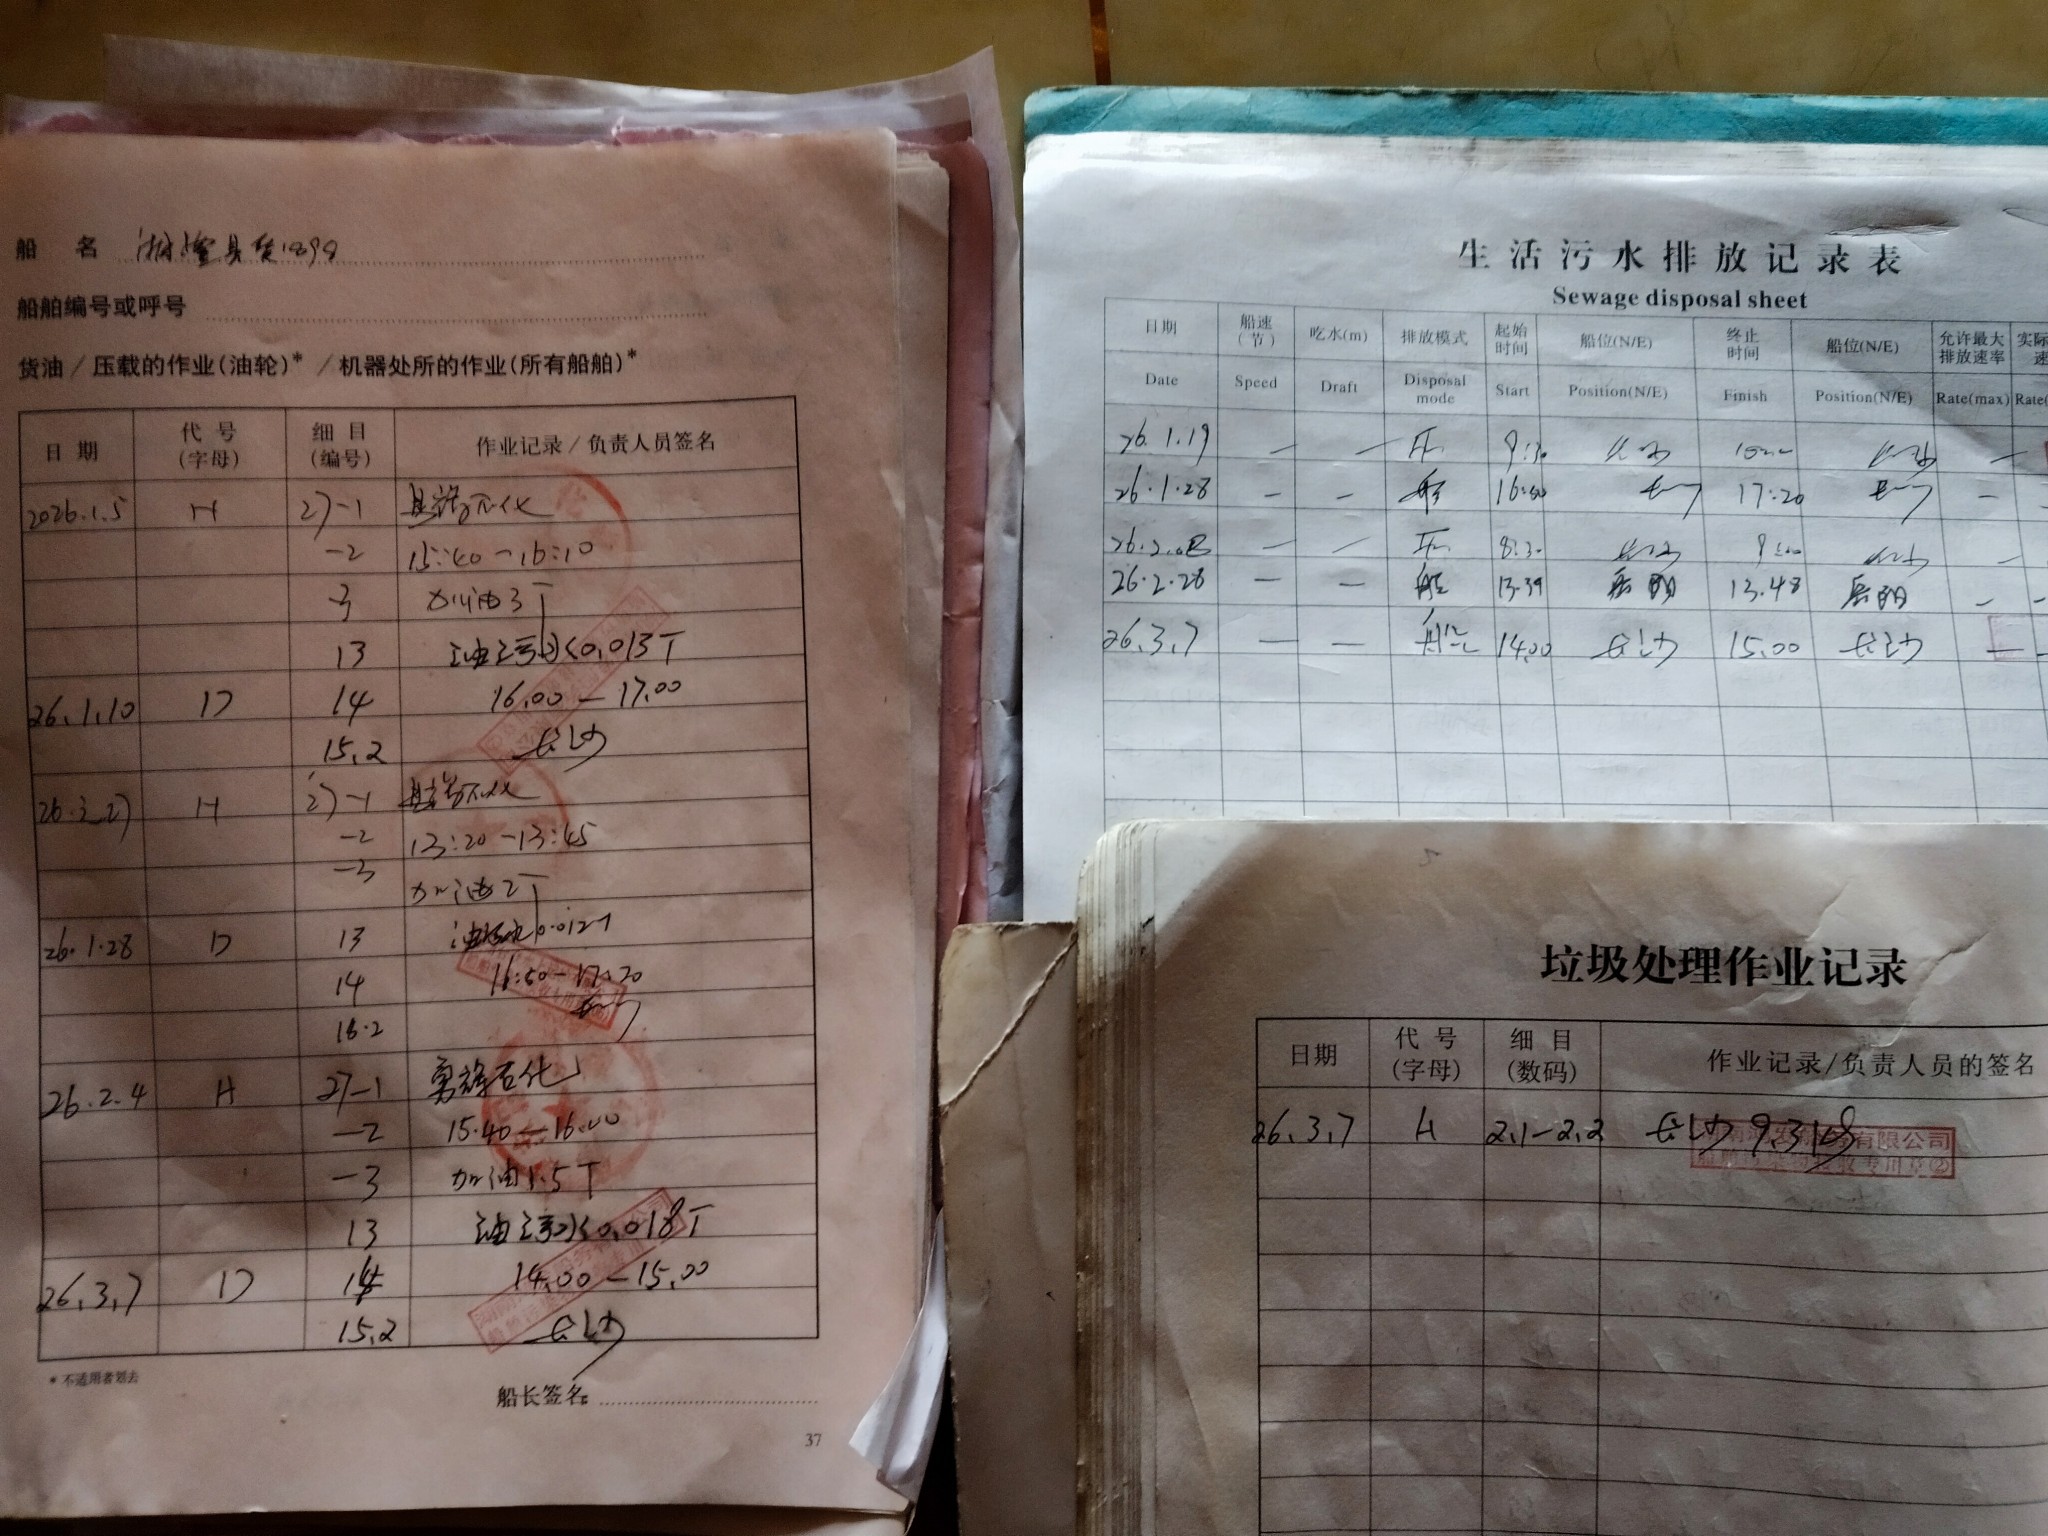 船 名
船舶编号或呼号
货油/压载的作业(油轮)* /机器处所的作业(所有船舶)*
日 期 代 号(字母) 细 目(编号) 作业记录/负责人员签名
2026.1.5 H 27-1 石化
-2 15:40-16:10
-3 加油3T
13 油污水0.013T
26.1.10 D 14 16.00-17.00
15.2 长沙
H 27-1
-2 13:20-13:45
-3 加油2T
26.1.28 D 13 油污水0.012T
14 16:50-17:20
长沙
26.2.4 H 27-1 勇辉石化
-2 15.40-16.00
-3 加油1.5T
13 油污水0.018T
26.3.7 D 14 14.00-15.00
15.2 长沙
* 不适用者划去
船长签名
37
生活污水排放记录表
Sewage disposal sheet
日期 船速(节) 吃水(m) 排放模式 起始时间 船位(N/E) 终止时间 船位(N/E) 允许最大排放速率 实际
Date Speed Draft Disposal mode Start Position(N/E) Finish Position(N/E) Rate(max) Rate(
26.1.19 — — 9:30 长沙 长沙 —
26.1.28 — — 船 17:20 —
— — 8:30 长沙 9:00 长沙 —
26.2.28 — — 船 13.39 岳阳 13.48 岳阳 — —
26.3.7 — — 船 14.00 长沙 15.00 长沙 — —
垃圾处理作业记录
日期 代 号(字母) 细 目(数码) 作业记录/负责人员的签名
26.3.7 H 2.1-2.2 长沙
有限公司